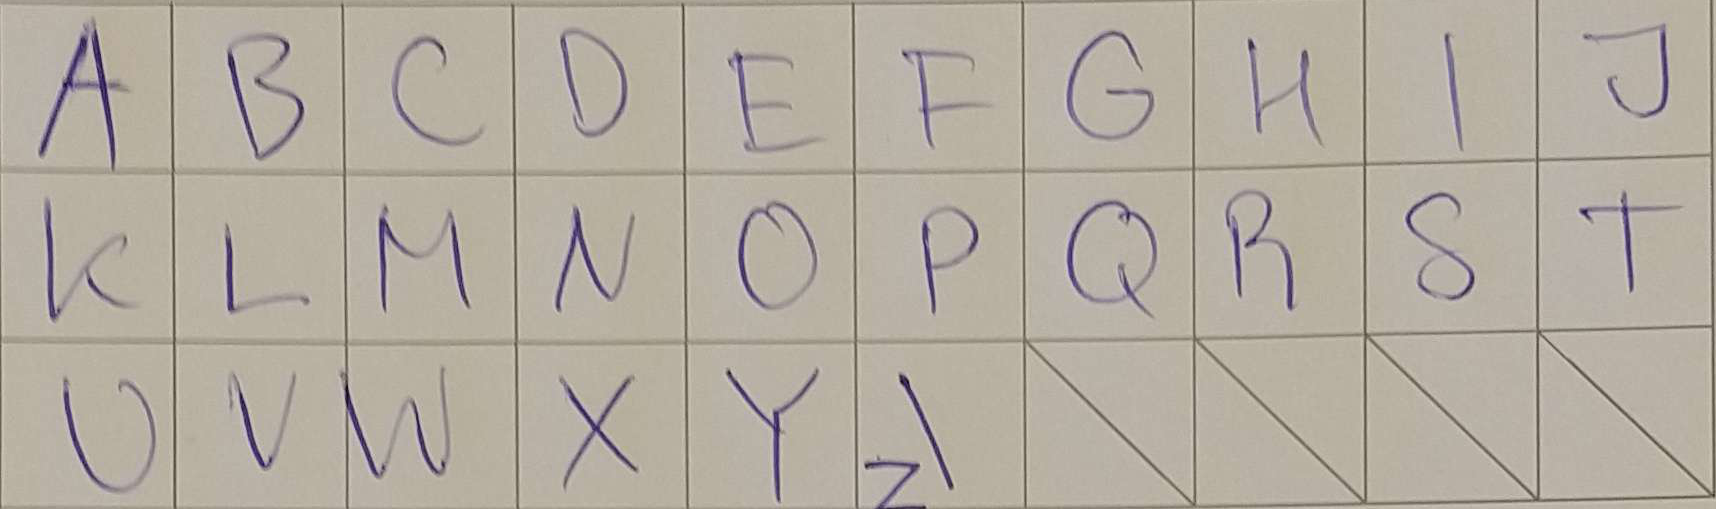 A B C D E F G H I J
K L M N O P Q R S T
U V W X Y Z \